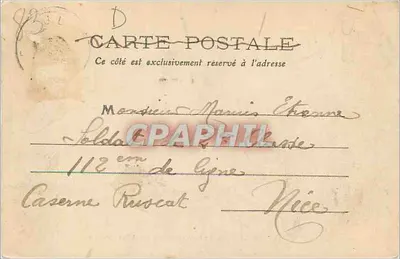 D
CARTE POSTALE
Ce côté est exclusivement reservé à l'adresse
Monsieur Marius Etienne
Soldat de 2e Classe
CPAPHIL
112em de ligne
Caserne Ruscat Nice